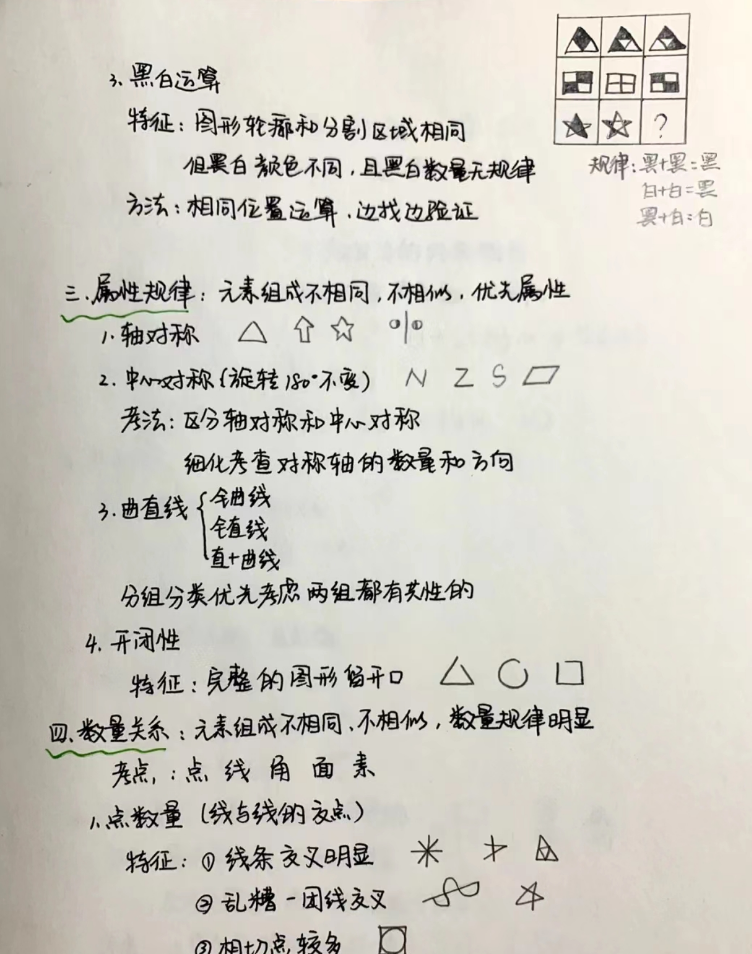 3. 黑白运算
特征：图形轮廓和分割区域相同
但黑白颜色不同，且黑白数量无规律
方法：相同位置运算、边找边验证
?
规律：黑+黑=黑
白+白=黑
黑+白=白
三、属性规律：元素组成不相同，不相似，优先属性
1. 轴对称
2. 中心对称（旋转180°不变） N Z S
考法：区分轴对称和中心对称
细化考查对称轴的数量和方向
3. 曲直线
全曲线
全直线
直+曲线
分组分类优先考虑两组都有共性的
4. 开闭性
特征：完整的图形留开口
四、数量关系：元素组成不相同、不相似，数量规律明显
考点：点 线 角 面 素
1. 点数量（线与线的交点）
特征：① 线条交叉明显
② 乱糟一团线交叉
③ 相切点较多